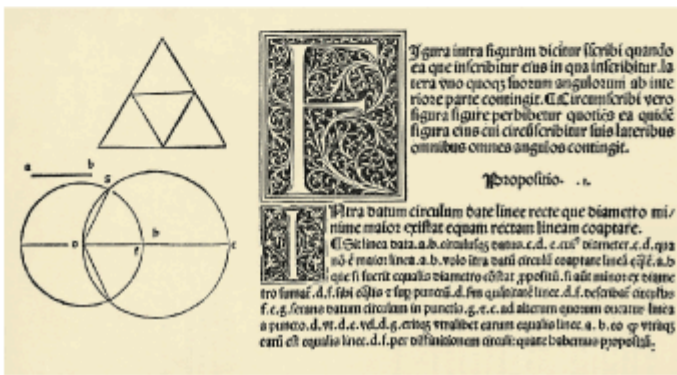 a b
s
D f b c
Figura intra figuram dicitur īscribi quando
ea que inscribitur eius in qua inscribitur. la
tera vno quoqȝ suorum angulorum ab inte
riore parte contingit. ¶ Circumscribi vero
figura figure perhibetur quotiēs ea quidē
figura eius cui circūscribitur suis lateribus
omnibus omnes angulos contingit.
Propositio .1.
INtra datum circulum date linee recte que diametro mi/
nime maior existat equam rectam lineam coaptare.
¶ Sit linea data .a.b. circulusqȝ datus .c.d.e. cuiꝰ diameter .c.d. qua
nō ē maior linea .a.b. volo ītra datū circulū coaptare lineā eqlē .a.b
que si fuerit equalis diametro cōstat ꝓpositū. si aūt minor ex diame
tro sumaꝉ .d.f. sibi eqlis &
f.e.g. secans datum circulum in punctis .g.e. ad alterum quorum ducatur linea
a puncto .d. vt .d.e. vel .d.g. eritqȝ vtralibet earum equalis linee .a.b. eo ꝙ vtraqȝ
earū est equalis linee .d.f. per diffinitionem circuli: quare habemus propositū: